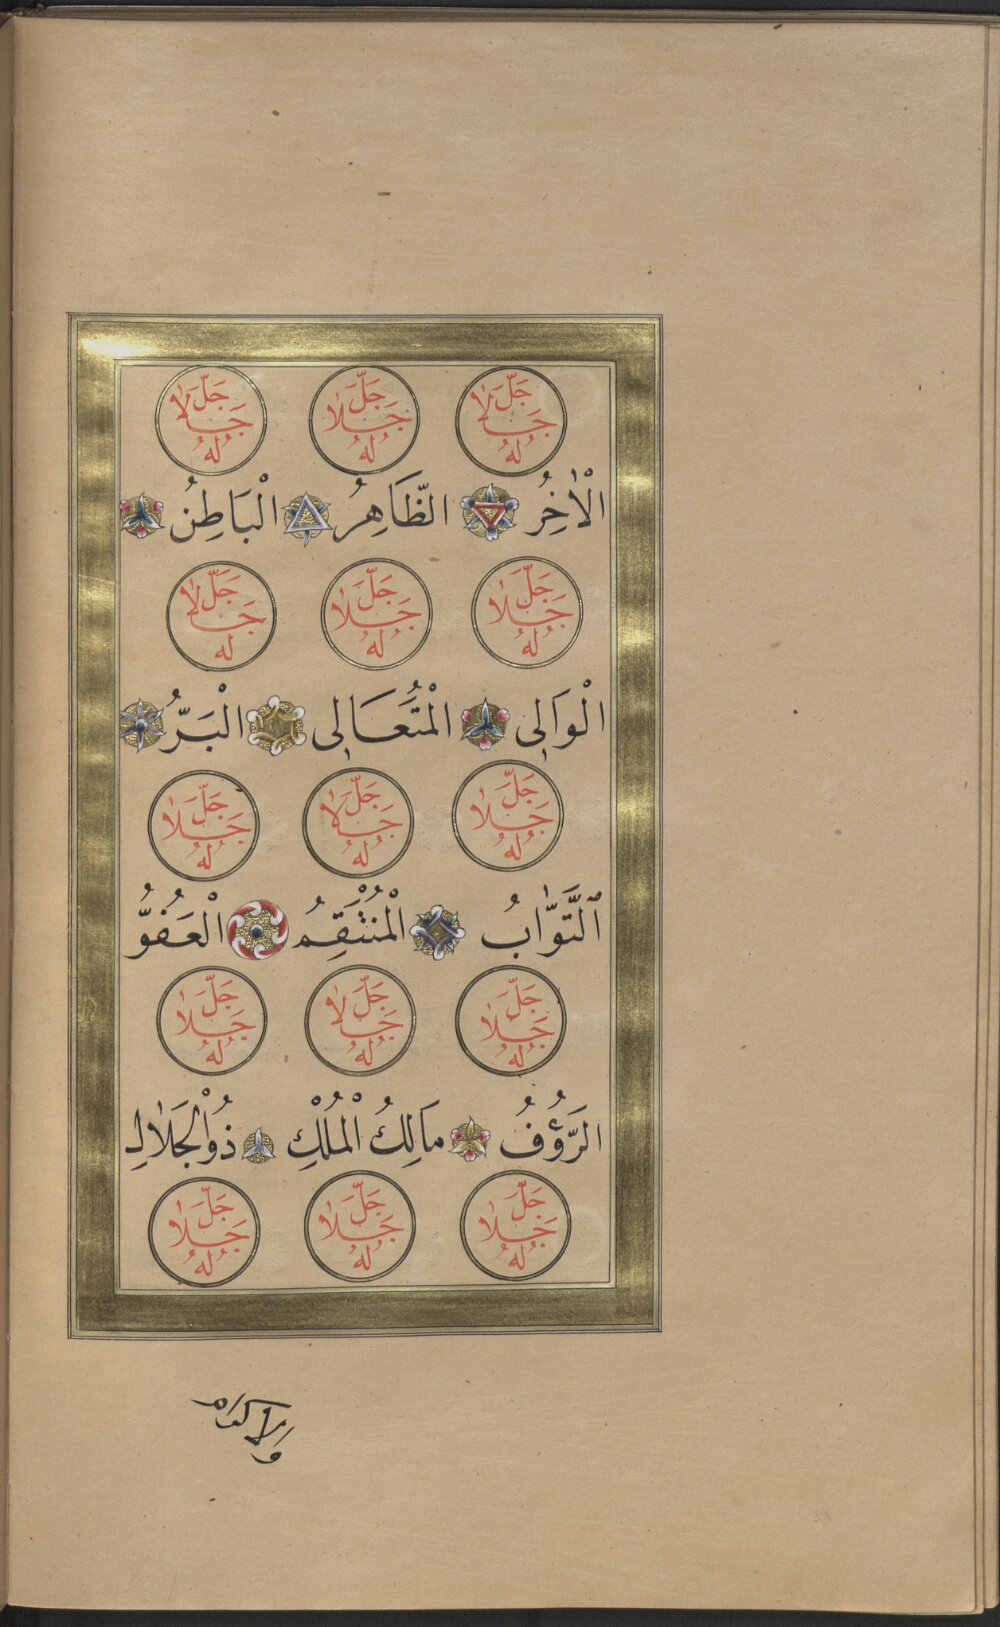 جَلَّ جَلَالُهُ جَلَّ جَلَالُهُ جَلَّ جَلَالُهُ
الْاٰخِرُ الظَّاهِرُ الْبَاطِنُ
جَلَّ جَلَالُهُ جَلَّ جَلَالُهُ جَلَّ جَلَالُهُ
الْوَالِى الْمُتَعَالِى الْبَرُّ
جَلَّ جَلَالُهُ جَلَّ جَلَالُهُ جَلَّ جَلَالُهُ
اَلتَّوَّابُ الْمُنْتَقِمُ الْعَفُوُّ
جَلَّ جَلَالُهُ جَلَّ جَلَالُهُ جَلَّ جَلَالُهُ
الرَّؤُفُ مَالِكُ الْمُلْكِ ذُوالْجَلَالِ
جَلَّ جَلَالُهُ جَلَّ جَلَالُهُ جَلَّ جَلَالُهُ
والاكرام